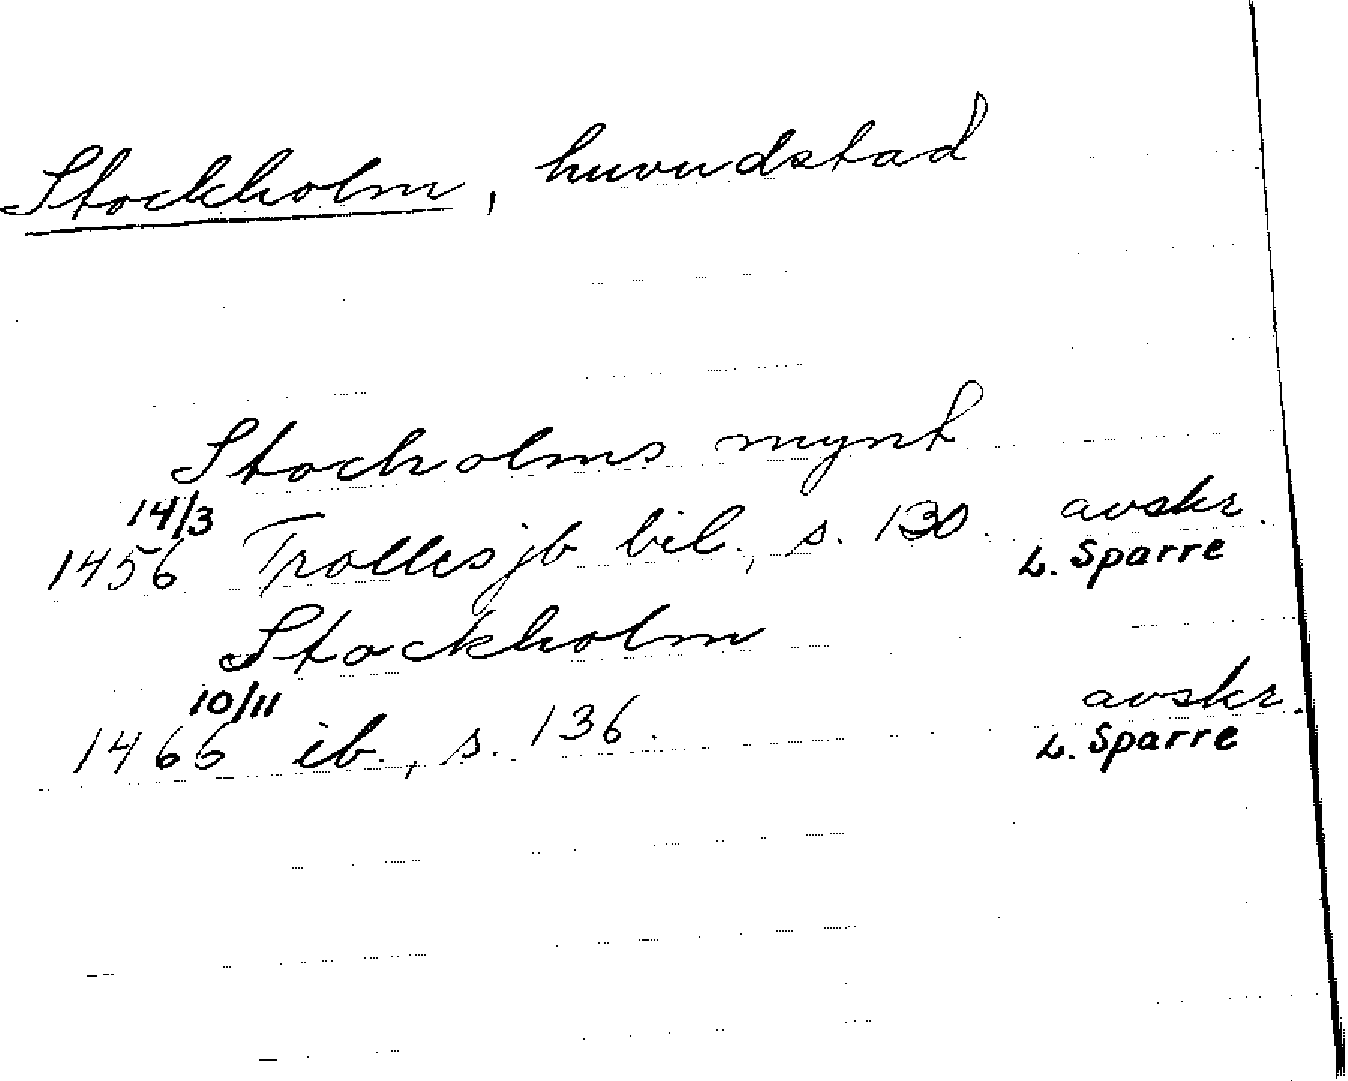 Stockholm, huvudstad
Stocholms mynt
14/3
1456 Trollesjb bil., s. 130. avskr.
L. Sparre
Stockholm
10/11
1466 ib., s. 136. avskr.
L. Sparre